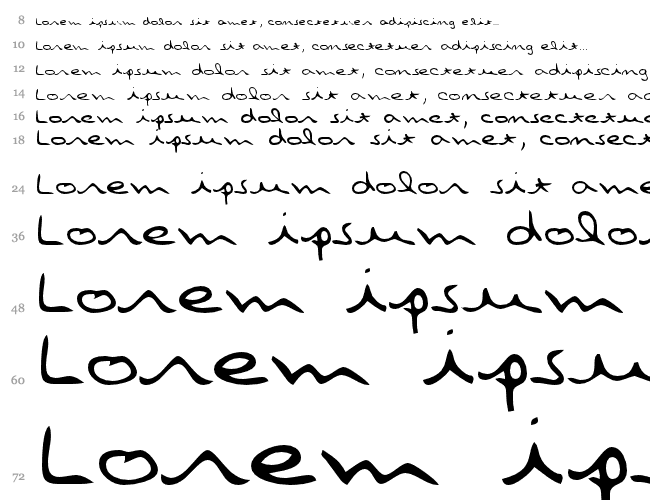 8 Lorem ipsum dolor sit amet, consectetuer adipiscing elit...
10 Lorem ipsum dolor sit amet, consectetuer adipiscing elit...
12 Lorem ipsum dolor sit amet, consectetuer adipiscing
14 Lorem ipsum dolor sit amet, consectetuer ad
16 Lorem ipsum dolor sit amet, consectetue
18 Lorem ipsum dolor sit amet, consect
24 Lorem ipsum dolor sit ame
36 Lorem ipsum dolo
48 Lorem ipsum
60 Lorem ipsu
72 Lorem ip